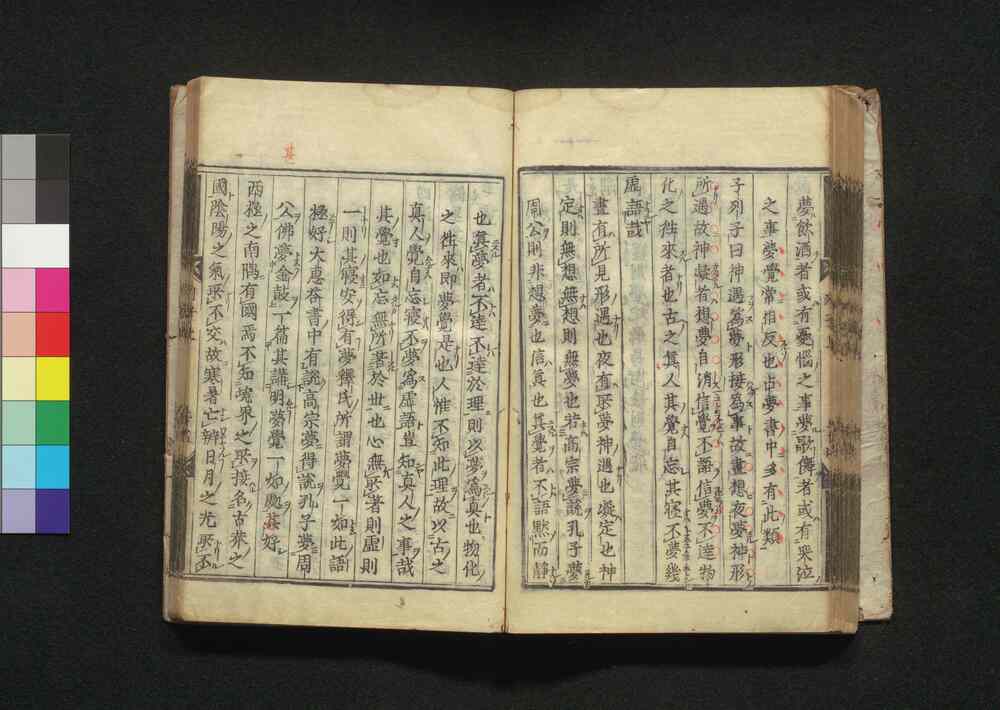 夢飲酒者或有憂惱之事夢歌儛者或有哭泣
之事夢覺常相反也占夢書中多有此類
子列子曰神遇爲夢形接爲事故晝想夜夢神形
所遇故神凝者想夢自消信覺不語信夢不達物
化之往來者也古之眞人其覺自忘其寢不夢幾
虛語哉
晝有所見形遇也夜有所夢神遇也凝定也神
定則無想無想則無夢也若高宗夢說孔子夢
周公則非想夢也信眞也其覺者不語默而靜
也眞夢者不達不達於理則以夢爲眞也物化
之徃來即夢覺是也人惟不知此理故以古之
眞人覺自忘寢不夢爲虛語豈知眞人之事哉
其覺也如忘無所著於世也心無所著則虛則
一則其寢安得有夢釋氏所謂夢覺一如此語
極好大惠荅書中有說高宗夢得說孔子夢周
公佛夢金鼓一篇其講明夢覺一如處甚好
西極之南隅有國焉不知境界之所接名古莽之
國陰陽之氣所不交故寒暑亡辨日月之光所不